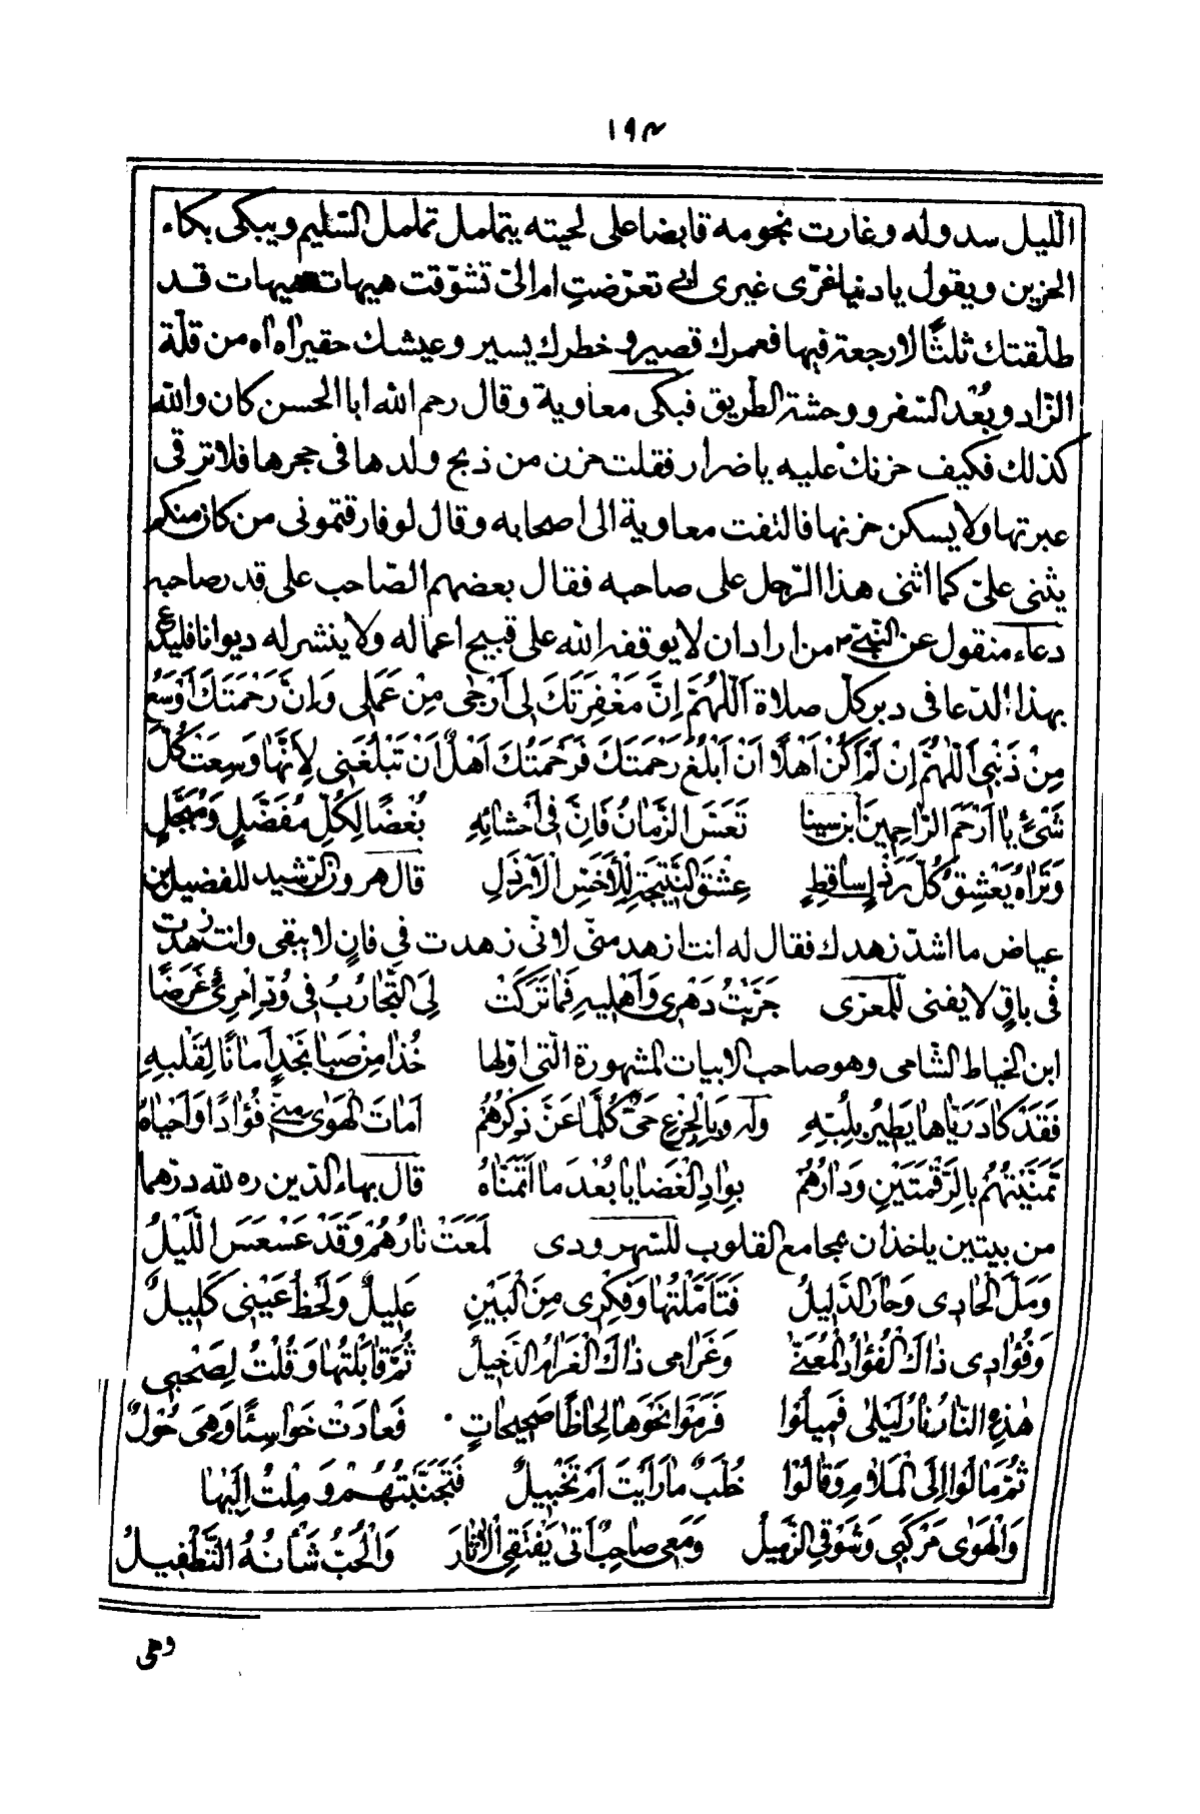 ١٩٣
اللّيل سدوله وغارت نجومه قابضا على لحيته يتململ تململ السّليم ويبكى بكاء
الحزين ويقول يا دنيا غرّى غيرى ابى تعرّضتِ ام الىّ تشوّقت هيهات هيهات قد
طلّقتك ثلثًا لا رجعة فيها فعمرك قصير و خطرك يسير وعيشك حقير اه اه من قلّة
الزّاد وبُعْد السّفر ووحشة الطّريق فبكى معاوية وقال رحم الله ابا الحسن كان والله
كذلك فكيف حزنك عليه يا ضرار فقلت حزن من ذبح ولدها فى حجرها فلا ترقى
عبرتها ولا يسكن حزنها فالتفت معاوية الى اصحابه وقال لو فارقتمونى من كان منكم
يثنى علىّ كما اثنى هذا الرّجل على صاحبه فقال بعضهم الصّاحب على قدر صاحبه
دعاء منقول عن النّبىّ ص من اراد ان لا يوقفه الله على قبيح اعماله ولا ينشر له ديوانا فليدع
بهذا الدّعا فى دبر كلّ صلاة اَللّهُمَّ اِنَّ مَغْفِرَتَكَ لى اَرْجٰى مِنْ عَمَلى وَاِنَّ رَحْمَتَكَ اَوْسَعُ
مِنْ ذَنْبى اَللّٰهُمَّ اِنْ لَمْ اَكُنْ اَهْلًا اَنْ اَبْلُغَ رَحْمَتَكَ فَرَحْمَتُكَ اَهْلٌ اَنْ تَبْلُغَنى لِاَنَّهٰا وَسِعَتْ كُلَّ
شَىْءٍ يٰا اَرْحَمَ الرّٰاحِمينَ ابن سينا تَعَسَ الزَّمٰانُ فَاِنَّ فى اَحْشٰائِهِ بُغْضًا لِكُلِّ مُفَضَّلٍ وَمُبَجَّلٍ
وَتَرٰاهُ يَعْشِقُ كُلَّ رَذْلٍ سٰاقِطٍ عِشْقَ النَّتيجَةِ لِلْاَخَسِّ الْاَرْذَلِ قال هرون الرّشيد للفضيل بن
عياض ما اشدّ زهدك فقال له انت ازهد منّى لانّى زهدت فى فانٍ لا يبقى وانت زهدت
فى باقٍ لا يفنى للمعرّى جَرَّبْتُ دَهْرى وَاَهْليهِ فَمٰا تَرَكَتْ لِىَ التَّجٰارُبُ فى وُدِّ امْرِئٍ غَرَضًا
ابن الخياط الشّامى وهو صاحب الابيات المشهورة الّتى اوّلها خُذٰا مِنْ صَبٰا نَجْدٍ اَمٰانًا لِقَلْبِهِ
فَقَدْ كٰادَ رَيّٰاهٰا يَطيرُ بِلُبِّهِ وله وَبِالْجِزْعِ حَىٌّ كُلَّمٰا عَنَّ ذِكْرُهُمْ اَمٰاتَ الْهَوٰى مِنّى فُؤٰادًا وَاَحْيٰاهُ
تَمَنَّيْتُهُمْ بِالرَّقْمَتَيْنِ وَدٰارُهُمْ بِوٰادِ الْغَضٰا يٰا بُعْدَ مٰا اَتَمَنّٰاهُ قال بهاء الدّين ره لله درّهما
من بيتين ياخذان بمجامع القلوب للسّهرودى لَمَعَتْ نٰارُهُمْ وَقَدْ عَسْعَسَ اللَّيْلُ
وَمَلَّ الْحٰادى وَحٰارَ الدَّليلُ فَتَاَمَّلْتُهٰا وَفِكْرى مِنَ الْبَيْنِ عَليلٌ وَلَحْظُ عَيْنى كَليلٌ
وَفُؤٰادى ذٰاكَ الْفُؤٰادُ الْمُعَنّٰى وَغَرٰامى ذٰاكَ الْغَرٰامُ الدَّخيلُ ثُمَّ قٰابَلْتُهٰا وَقُلْتُ لِصَحْبى
هٰذِهِ النّٰارُ نٰارُ لَيْلٰى فَميلُوٰا فَرَمَوْا نَحْوَهٰا لِحٰاظًا صَحيحٰاتٍ فَعٰادَتْ خَوٰاسِئًا وَهِىَ حُوْلٌ
ثُمَّ مٰالُوٰا اِلَى الْمَلٰامِ وَقٰالُوٰا خُلَّبٌ مٰا رَاَيْتَ اَمْ تَخْييلٌ فَتَجَنَّبْتُهُمْ وَمِلْتُ اِلَيْهٰا
وَالْهَوٰى مَرْكَبى وَشَوْقِى الزَّميلُ وَمَعى صٰاحِبٌ اَتٰى يَقْتَفِى الْاٰثٰارَ وَالْحُبُّ شَاْنُهُ التَّطْفيلُ
وهى